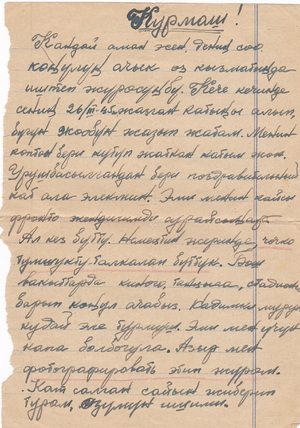 Курмаш!
Кандай аман эсен, дениң соо
көңүлүң ачык өз кызматыңда
иштеп жүрөсүңбү. Кече кечинде
сениң 26/III-45 жазган катыңы алып,
бүгүн жообун жазып жатам. Менин
көптөн бери күтүп жаткан катым жок.
поздравительный
кат ала элекмин. Эми менин кайсы
фронто
Ал көз бүттү. Немецтин жеринде чочко
талкалап бүттүк. Бош
вакыттарда киного, танцыга, стадионго
барып көңүл ачабыз. Кадимки
кудай эле турмуш. Эми мен үчүн
кана болбосуго. Азыр мен
фотографировать этип жүрөм.
Кат салган сайын жиберип
турам, өзүмүн ишими.